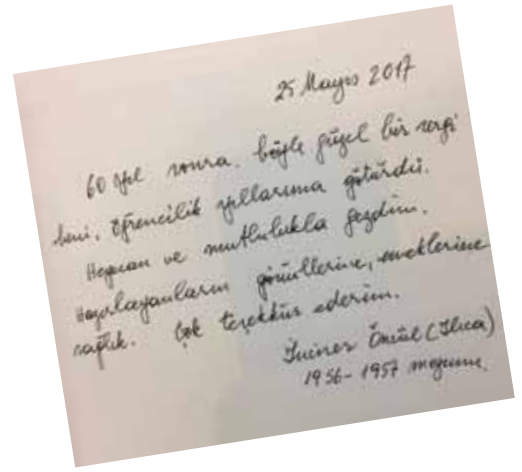 25 Mayıs 2017
60 yıl sonra. böyle güzel bir sergi
beni, öğrencilik yıllarıma götürdü.
Heyecan ve mutlulukla gezdim.
Hazırlayanların gönüllerine, emeklerine
sağlık. Çok teşekkür ederim.
(Ilıca)
1956-1957 mezunu.